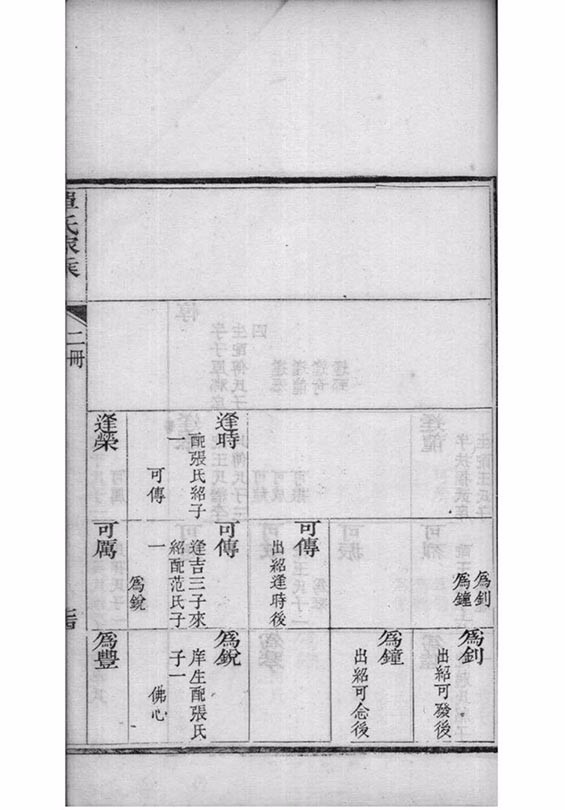 逢時
配張氏紹子
一
可傳
逢榮
爲釗
爲鐘
可傳
出紹逢時後
可傳
逢吉三子來
紹配范氏子
一
爲銳
可厲
爲釗
出紹可發後
爲鐘
出紹可念後
爲銳
庠生配張氏
子一
佛心
爲豐
氏家乘
二冊